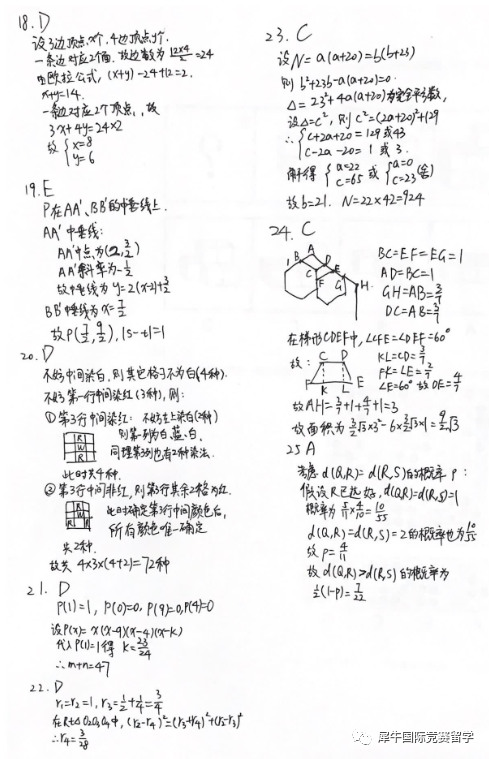 18. D
设3边顶点x个, 4边顶点y个.
一条边对应2个面. 故边数为 12×4/2 = 24
由欧拉公式, (x+y)-24+12=2.
x+y=14.
一条边对应2个顶点, 故
3x+4y=24×2
故 { x=8
y=6
19. E
P在AA'、BB'的中垂线上.
AA'中垂线:
AA'中点为(2, 3/2)
AA'斜率为-1/2
故中垂线为 y=2(x-2)+3/2
BB'中垂线为 x=7/2
故P(7/2, 9/2), |s-t|=1
20. D
不妨中间染白, 则其它格子不为白(4种).
不妨第一行中间染红(3种), 则:
① 第3行中间染红: 不妨左上染白(2种)
R
W
R
则第1列为白、蓝、白.
同理第3列也有2种染法.
此时共4种.
② 第3行中间非红, 则第3行其余2格为红.
R
W
R R
此时确定第3行中间颜色后,
所有颜色唯一确定
共2种.
故共 4×3×(4+2)=72种
21. D
P(1)=1, P(0)=0, P(9)=0, P(4)=0
设P(x)= x(x-9)(x-4)(x-k)
代入P(1)=1得 k=23/24
∴m+n=47
22. D
r₁=r₂=1, r₃=1/2+1/4=3/4
∴r₄=3/28
23. C
设N=a(a+20)=b(b+23)
则 b²+23b-a(a+20)=0.
Δ=23²+4a(a+20)为完全平方数,
设Δ=c², 则 c²=(2a+20)²+129
∴ { c+2a+20=129 或43
c-2a-20=1 或 3.
解得 { a=22 c=65 或 { a=0 c=23 (舍)
故b=21. N=22×42=924
24. C
BC=EF=EG=1
AD=BC=1
GH=AB=3/7
DC=AB=3/7
在梯形CDEF中, ∠CFE=∠DEF=60°
故:
C D
F K L E
KL=CD=3/7
FK=LE=2/7
∠E=60° 故DE=4/7
故AH=3/7+1+4/7+1=3
25 A
考虑 d(Q,R)=d(R,S)的概率 p:
假设R已选好, d(Q,R)=d(R,S)=1
概率为 5/11×4/10=10/55
d(Q,R)=d(R,S)=2的概率也为10/55
故 p=4/11
故 d(Q,R)>d(R,S)的概率为
1/2(1-p)=7/22
犀牛国际竞赛留学